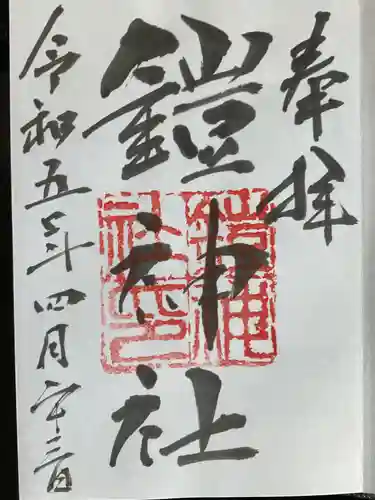 奉拝
鎧神社
令和五年四月二十三日